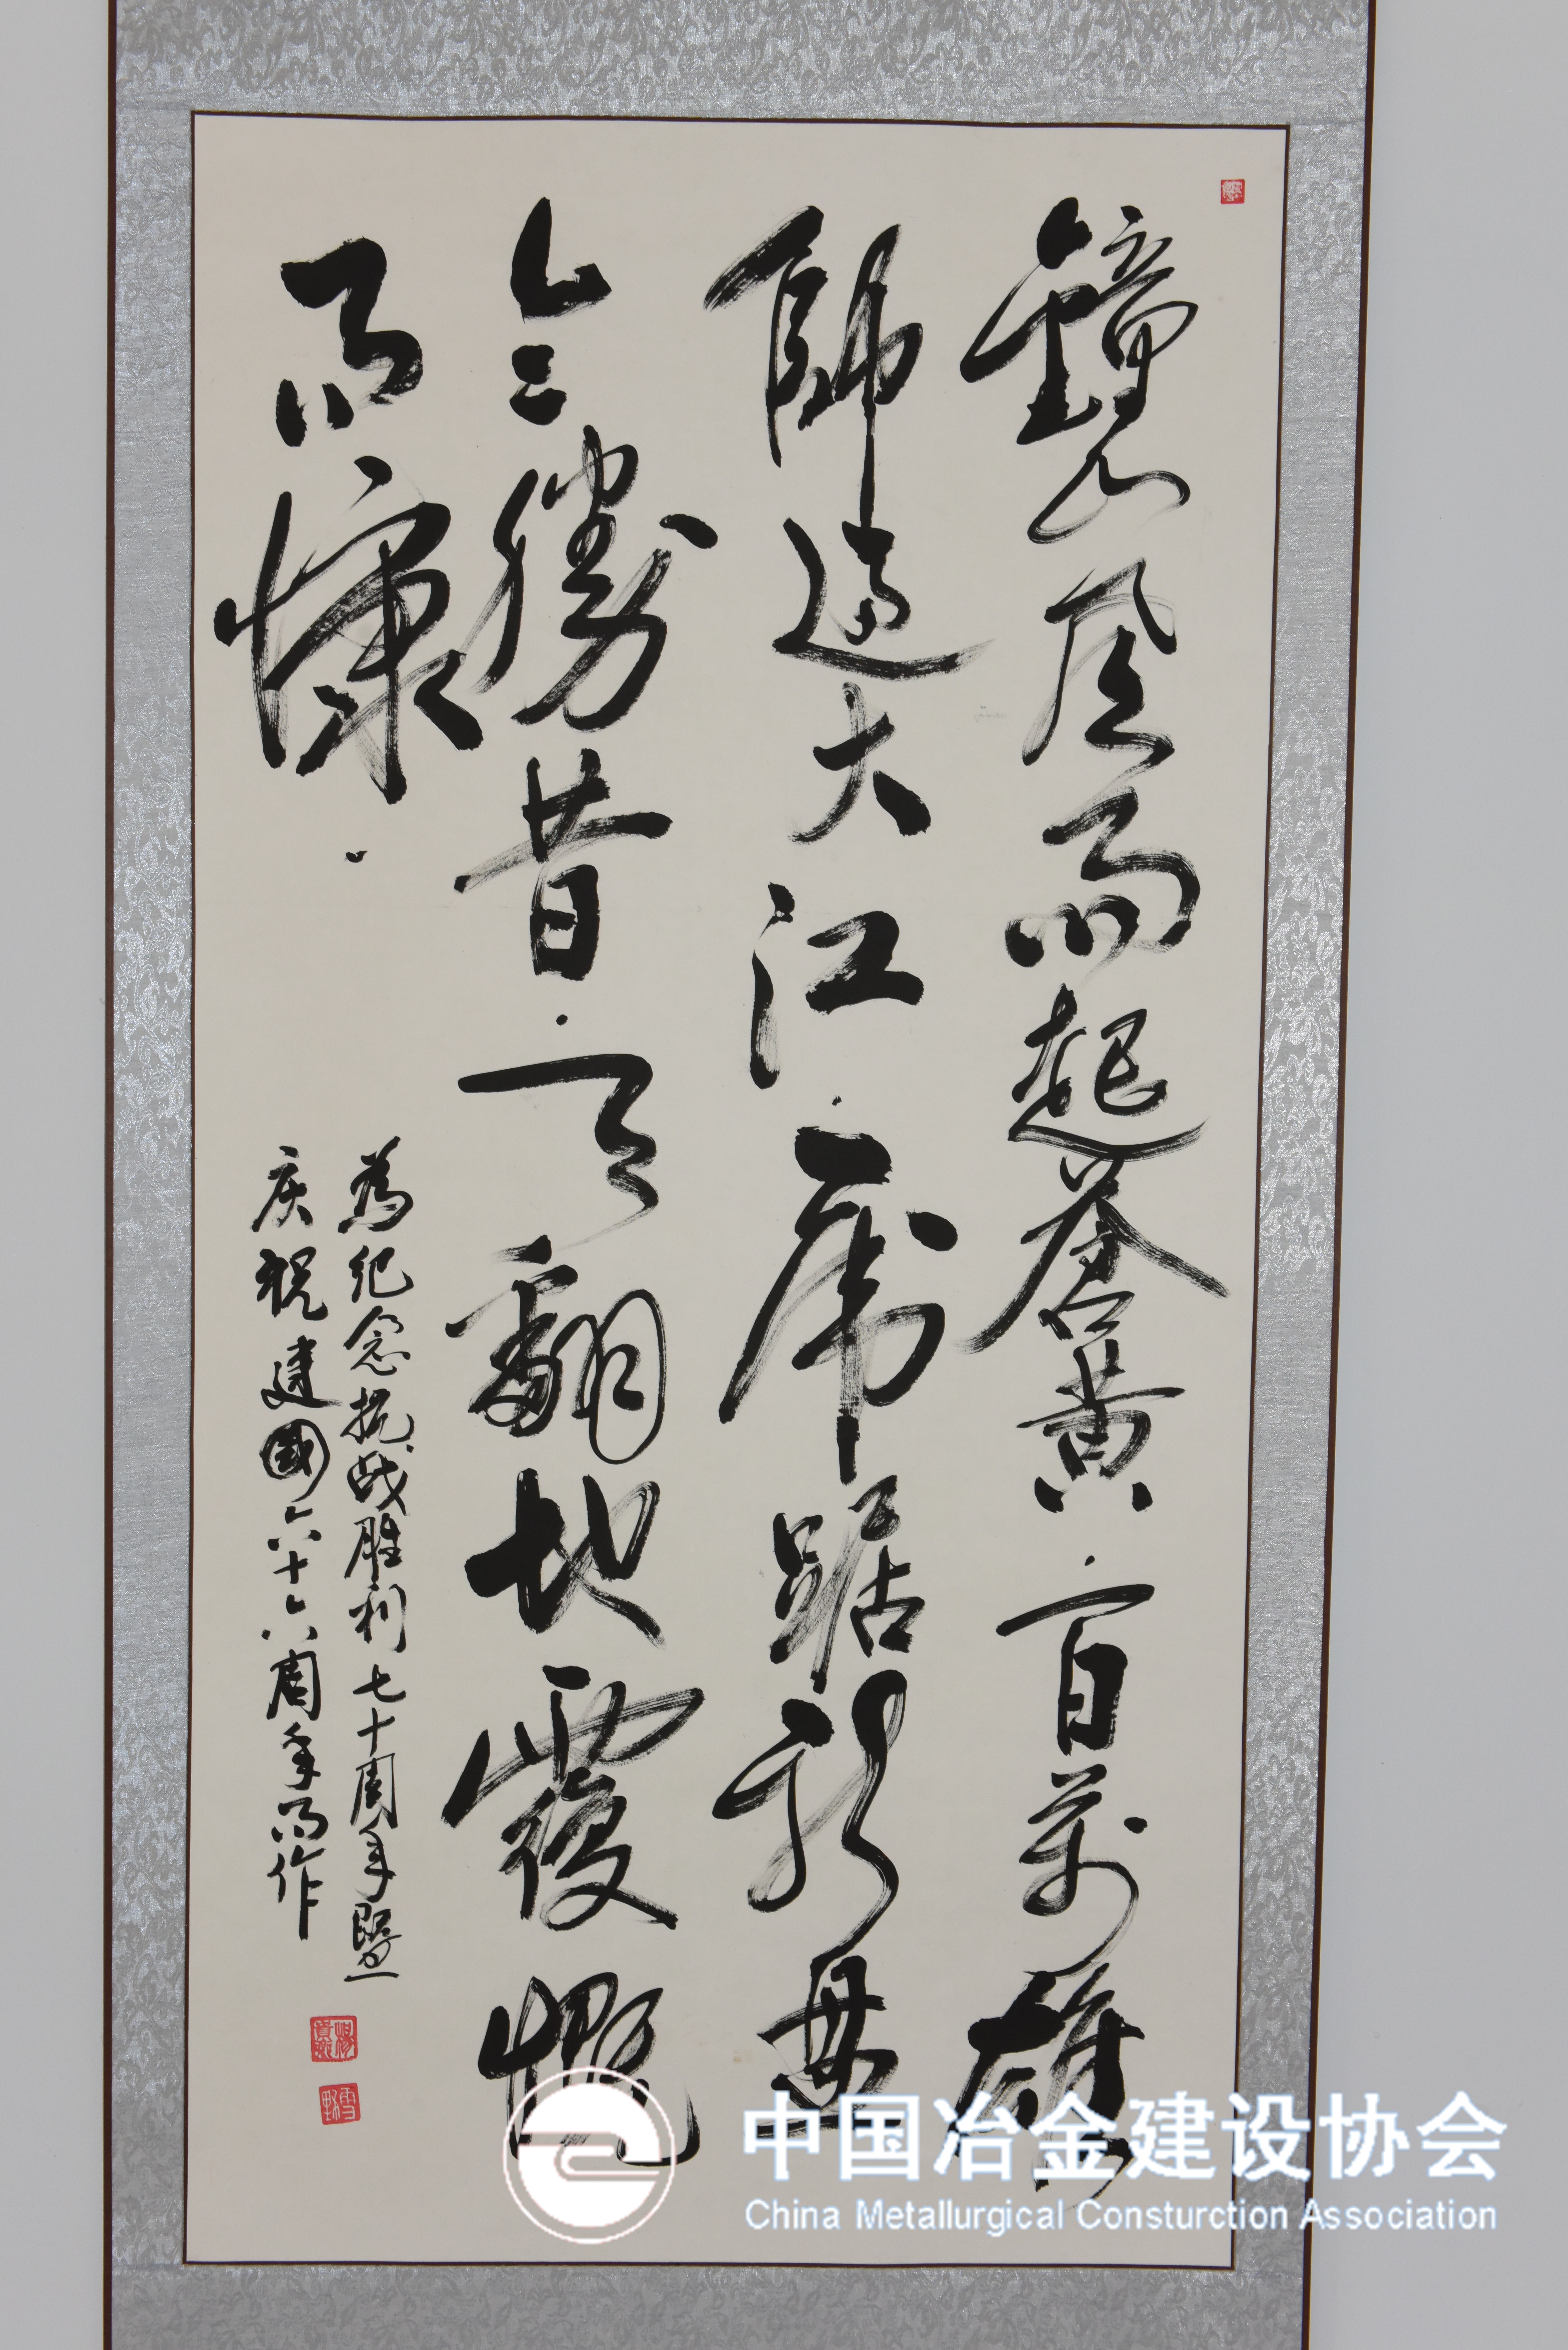 鐘山風雨起蒼黃百萬雄
師過大江虎踞龍盤
今勝昔天翻地覆慨
而慷
為纪念抗战胜利七十周年暨
庆祝建國六十六周年而作
中国冶金建设协会
China Metallurgical Consturction Association